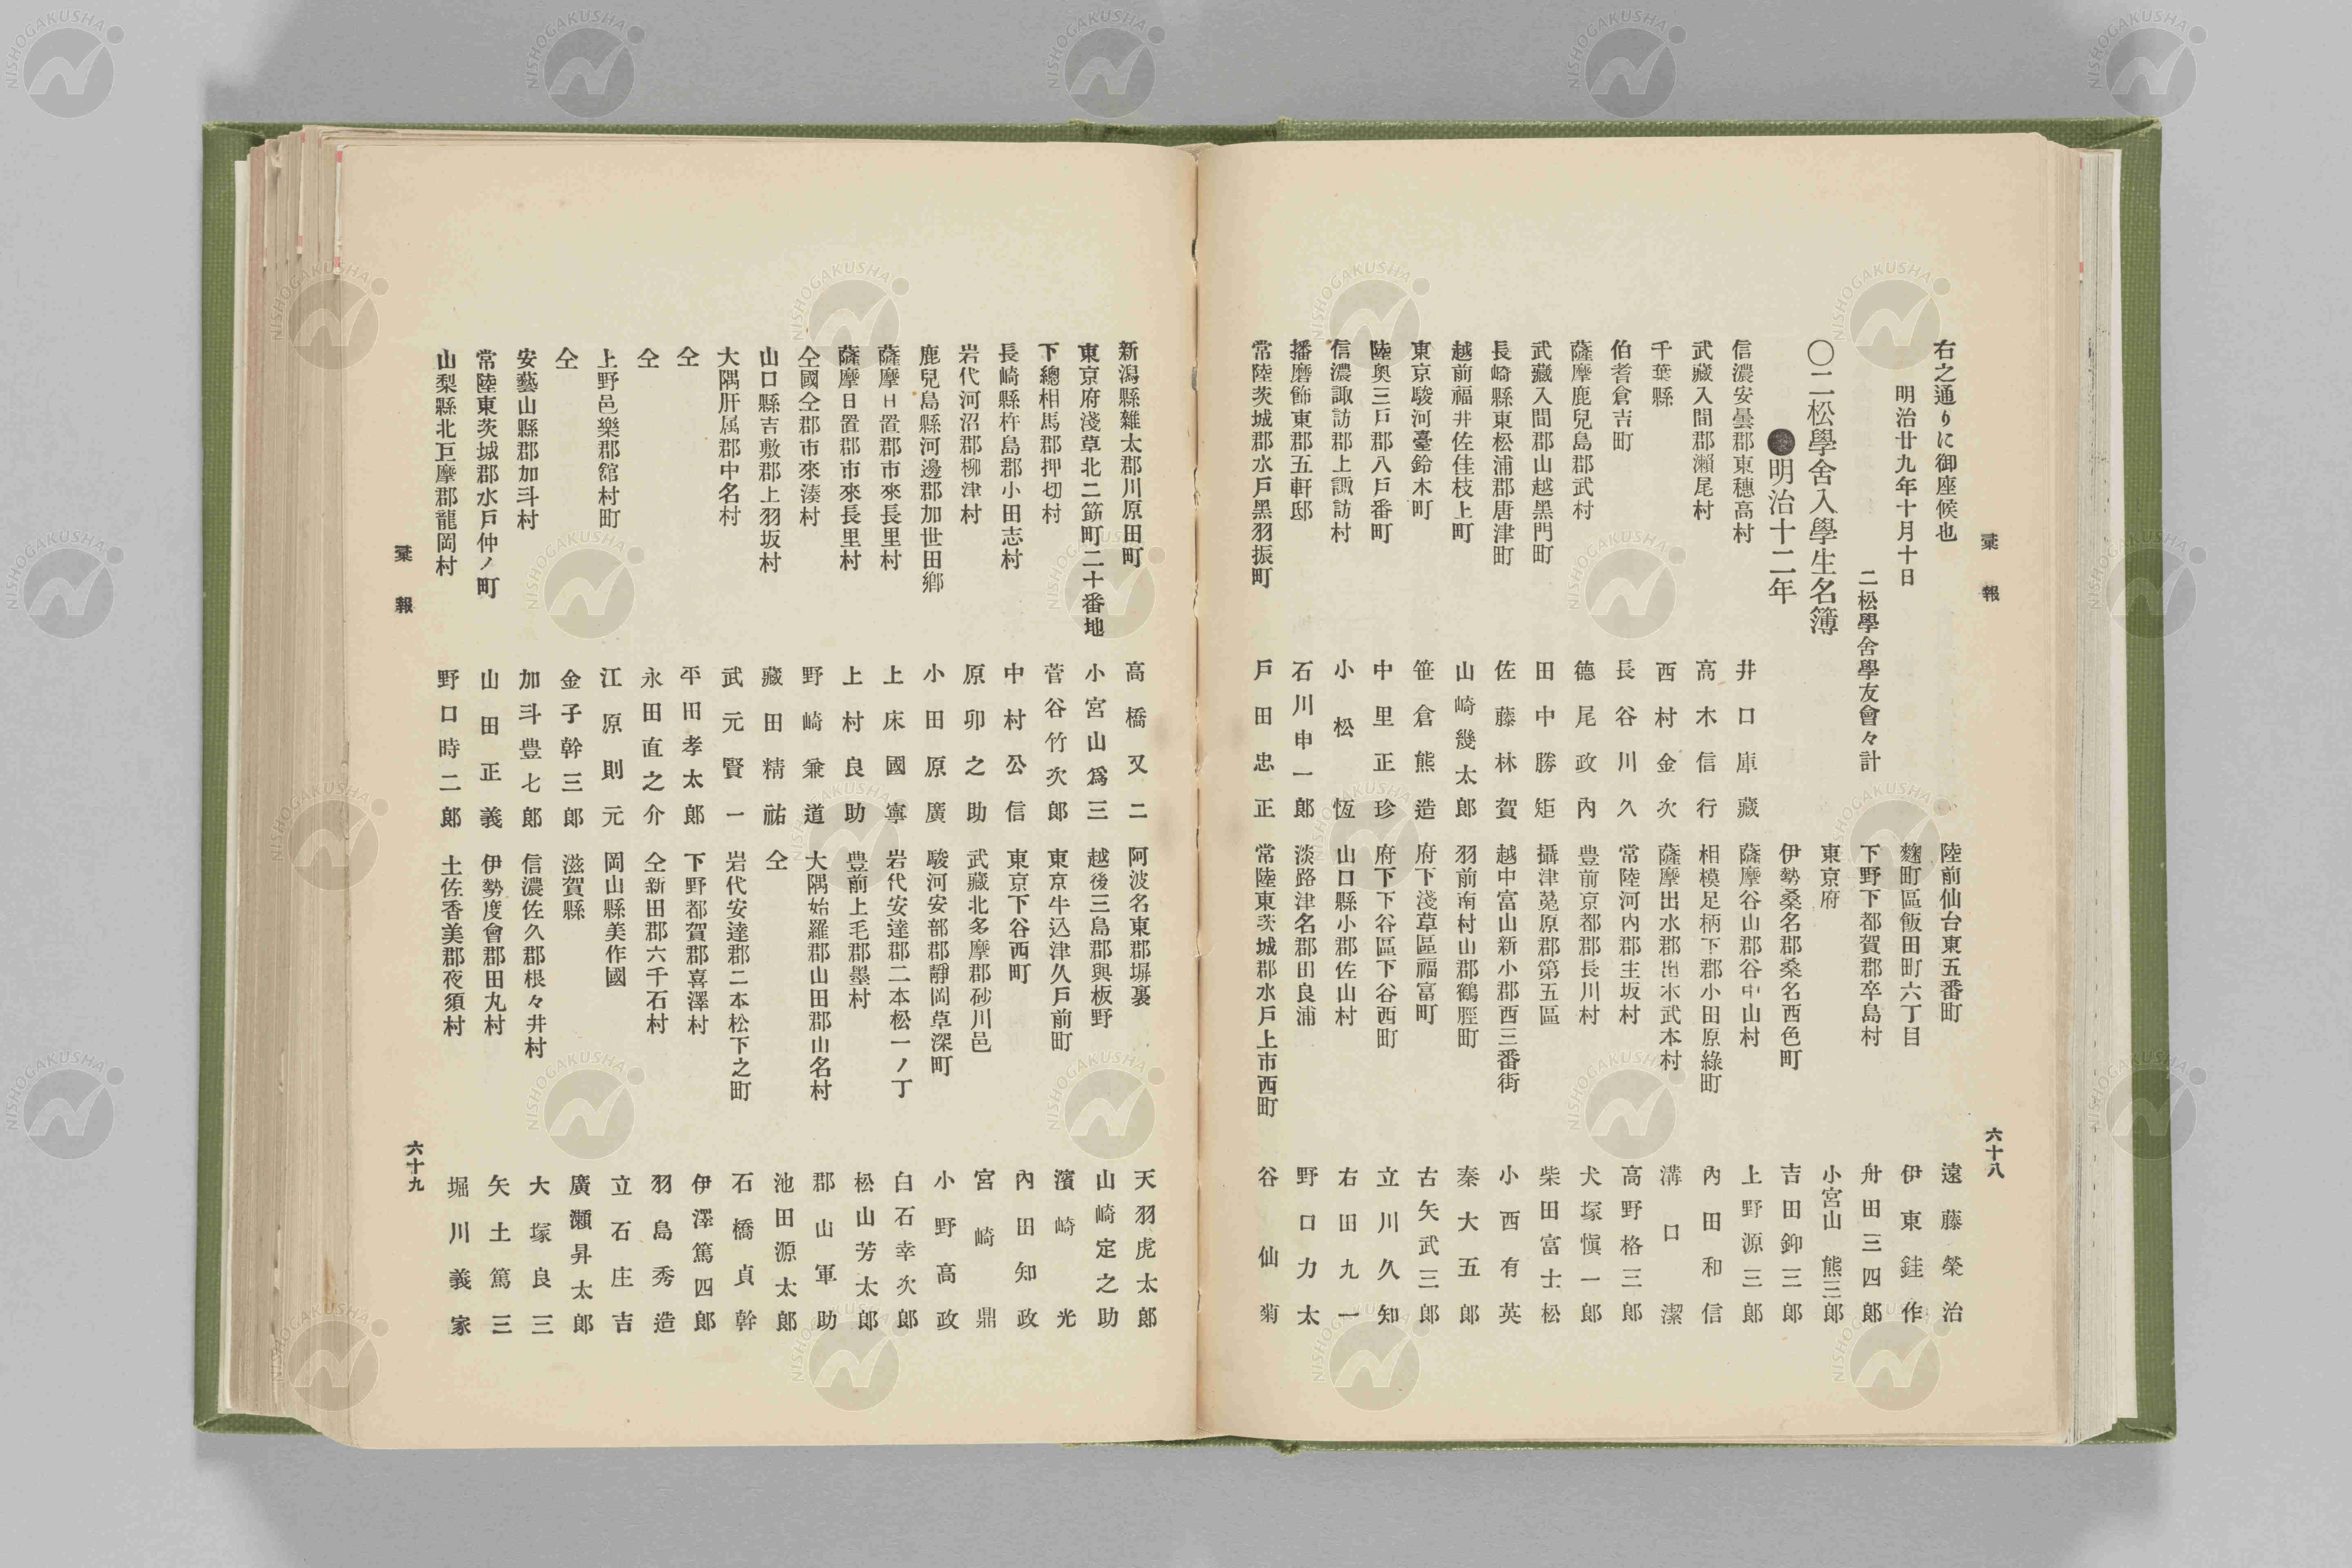 彙報
六十八
右之通りに御座候也
明治廿九年十月十日
二松學舍學友會々計
〇二松學舍入學生名簿
●明治十二年
信濃安曇郡東穗高村 井口庫藏
武藏入間郡瀨尾村 高木信行
千葉縣 西村金次
伯耆倉吉町 長谷川久
薩摩鹿兒島郡武村 德尾政內
武藏入間郡山越黑門町 田中勝矩
長崎縣東松浦郡唐津町 佐藤林賀
越前福井佐佳枝上町 山崎幾太郎
東京駿河臺鈴木町 笹倉熊造
陸奧三戶郡八戶番町 中里正珍
信濃諏訪郡上諏訪村 小松恆
播磨飾東郡五軒邸 石川申一郎
常陸茨城郡水戶黑羽振町 戶田忠正
陸前仙台東五番町 遠藤榮治
麴町區飯田町六丁目 伊東銈作
下野下都賀郡卒島村 舟田三四郎
東京府 小宮山熊三郎
伊勢桑名郡桑名西色町 吉田鉚三郎
薩摩谷山郡谷中山村 上野源三郎
相模足柄下郡小田原綠町 內田和信
薩摩出水郡出水武本村 溝口潔
常陸河內郡主坂村 高野格三郎
豊前京都郡長川村 犬塚愼一郎
攝津菟原郡第五區 柴田富士松
越中富山新小郡西三番街 小西有英
羽前南村山郡鶴脛町 秦大五郎
府下淺草區福富町 古矢武三郎
府下下谷區下谷西町 立川久知
山口縣小郡佐山村 右田九一
淡路津名郡田良浦 野口力太
常陸東茨城郡水戶上市西町 谷仙菊
新潟縣雜太郡川原田町 高橋又二
東京府淺草北二筋町二十番地 小宮山爲三
下總相馬郡押切村 菅谷竹次郎
長崎縣杵島郡小田志村 中村公信
岩代河沼郡柳津村 原卯之助
鹿兒島縣河邊郡加世田鄉 小田原廣
薩摩日置郡市來長里村 上床國寧
薩摩日置郡市來長里村 上村良助
仝國仝郡市來湊村 野崎兼道
山口縣吉敷郡上羽坂村 藏田精祐
大隅肝属郡中名村 武元賢一
仝 平田孝太郎
仝 永田直之介
上野邑樂郡舘村町 江原則元
仝 金子幹三郎
安藝山縣郡加斗村 加斗豊七郎
常陸東茨城郡水戶仲ノ町 山田正義
山梨縣北巨摩郡龍岡村 野口時二郎
阿波名東郡塀裏 天羽虎太郎
越後三島郡與板野 山崎定之助
東京牛込津久戶前町 濱崎光
東京下谷西町 內田知政
武藏北多摩郡砂川邑 宮崎鼎
駿河安部郡靜岡草深町 小野高政
岩代安達郡二本松一ノ丁 白石幸次郎
豊前上毛郡墨村 松山芳太郎
大隅始羅郡山田郡山名村 郡山軍助
仝 池田源太郎
岩代安達郡二本松下之町 石橋貞幹
下野都賀郡喜澤村 伊澤篤四郎
仝新田郡六千石村 羽島秀造
岡山縣美作國 立石庄吉
滋賀縣 廣瀨昇太郎
信濃佐久郡根々井村 大塚良三
伊勢度會郡田丸村 矢土篤三
土佐香美郡夜須村 堀川義家
彙報
六十九